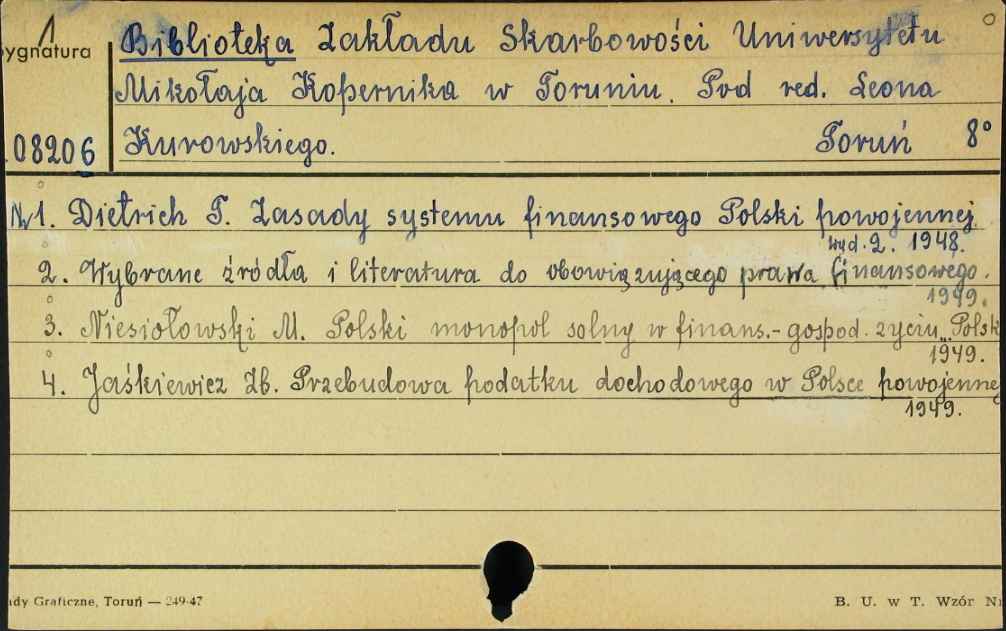 1
ygnatura
Biblioteka Zakładu Skarbowości Uniwersytetu
Mikołaja Kopernika w Toruniu. Pod red. Leona
08206 Kurowskiego. Toruń 8°
Nr 1. Dietrich T. Zasady systemu finansowego Polski powojennej.
wyd. 2. 1948.
2. Wybrane źródła i literatura do obowiązującego prawa finansowego.
1949.
3. Niesiołowski M. Polski monopol solny w finans.-gospod. życiu Polsk
1949.
4. Jaśkiewicz Zb. Przebudowa podatku dochodowego w Polsce powojennej
1949.
ady Graficzne, Toruń — 249-47 B. U. w T. Wzór Nr